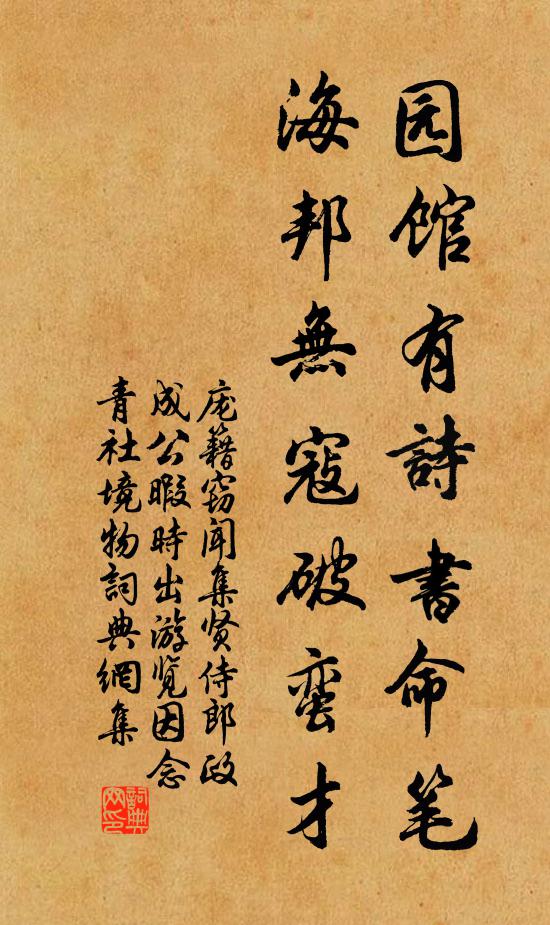 园馆有詩書命笔
海邦無寇破蛮才
庞籍窃闻集贤侍郎政
成公暇時出游览因念
青社境物詞典網集
詞典网印